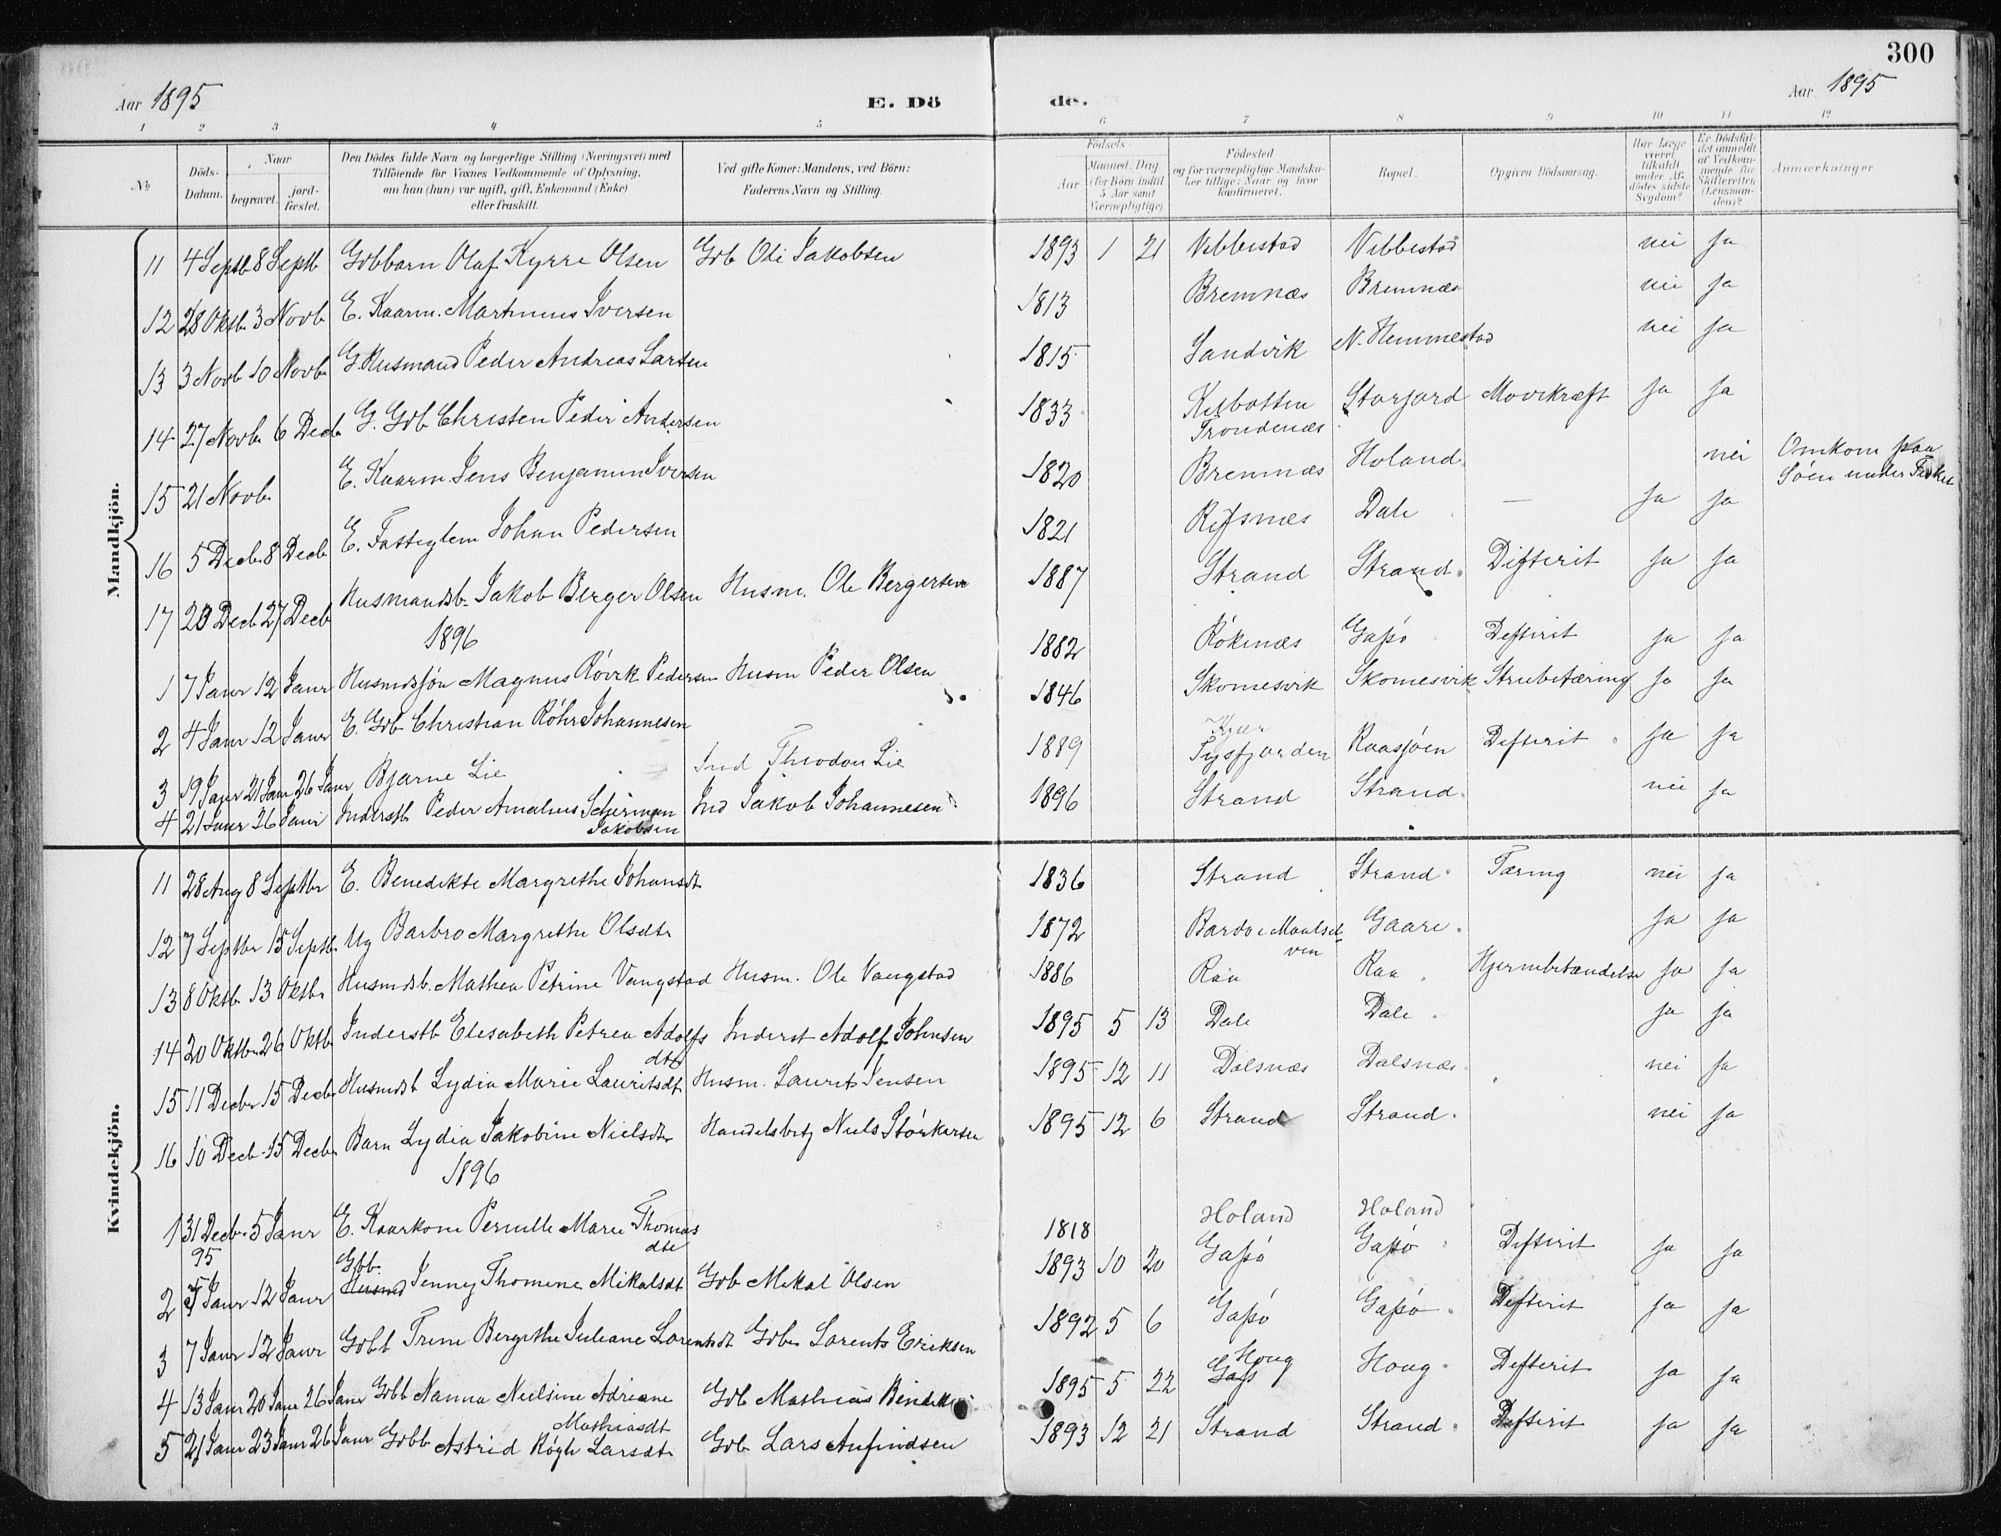 300
Aar 1895 E. Dö de. Aar 1895
1 2 3 4 5 6 7 8 9 10 11 12
No. Döds-Datum. Naar begravet. jord-fæstet. Den Dödes fulde Navn og borgerlige Stilling (Næringsvei) med Tilföiende for Voxnes Vedkommende af Oplysning, om han (hun) var ugift, gift, Enkemand (Enke) eller fraskilt. Ved gifte Koner: Mandens, ved Börn: Faderens Navn og Stilling. Födsels- Aar Maaned. Dag. (for Börn indtil 5 Aar samt Værnepligtige). Födested og for værnepligtige Mandskaber tillige: Naar og hvor konfirmeret. Bopæl. Opgiven Dödsaarsag. Har Læge været tilkaldt under Afdödes sidste Sygdom? Er Dödsfaldet anmeldt af Vedkommende for Skifteretten (Lensmanden)? Anmærkninger.
Mandkjön.
11 4 Septb 8 Septb Gbbarn Olaf Kyrre Olsen Gb Ole Jakobsen 1893 1 21 Vebbestad Vebbestad nei ja
12 28 Oktb 3 Novb E. Kaarm. Martinus Iversen 1813 Bremnæs Bremnæs nei ja
13 3 Novb 10 Novb G. Husmand Peder Andreas Larsen 1815 Sandvik N. Hemmestad nei ja
14 27 Novb 6 Decb G. Gb Christen Peder Andersen 1833 Kilbotten Trondenæs Storjord Mavekræft ja ja
15 21 Novb E. Kaarm. Jens Benjamin Iversen 1820 Bremnæs Holand nei Omkom paa Söen under Fiskeri
16 5 Decb 8 Decb E. Fattiglem Johan Pedersen 1821 Refsnæs Dale — ja ja
17 20 Decb 27 Decb Husmandsb. Jakob Berger Olsen Husm. Ole Bergersen 1887 Strand Strand Difterit ja ja
1896
1 7 Janr 12 Janr Husmdssøn Magnus Røvik Pedersen Husm Peder Olsen 1882 Rökenæs Gapö Defterit ja ja
2 4 Janr 12 Janr E. Gb Christian Röhr Johannesen 1846 Skomesvik Skomesvik Strubetæring ja ja
3 19 Janr 21 Janr 26 Janr Bjarne Lie Ind Theodor Lie 1889 Kjær Tysfjorden Kaasjöen Defterit ja ja
4 21 Janr 26 Janr Inderstb Peder Amalius Scherman Jakobsen Ind Jakob Johannesen 1896 Strand Strand nei ja
Kvindekjön.
11 28 Aug 8 Septbr E. Benedikte Margrethe Johansdt 1836 Strand Strand Tæring nei ja
12 7 Septbr 15 Septb Ug Barbro Margrethe Olsdtr 1872 Bardo i Maalselven Gaare ja ja
13 8 Oktb 13 Oktbr Husmdsb. Mathea Petrine Vangstad Husm. Ole Vangstad 1886 Raa Raa Hjernebetændelse ja ja
14 20 Oktbr 26 Oktb Inderstb Elesabeth Petrea Adolfsdtr Inderst Adolf Johnsen 1895 5 13 Dale Dale ja ja
15 11 Decbr 15 Decbr Husmdsb Lydia Marie Lauritsdt Husm. Laurits Jensen 1895 12 11 Dalsnæs Dalsnæs nei ja
16 10 Decb 15 Decbr Barn Lydia Jakobine Nielsdtr Handelsbetj Niels Störkersen 1895 12 6 Strand Strand nei ja
1896
1 31 Decb 95 5 Janr E. Kaarkone Pernille Marie Thomasdtr 1818 Holand Holand
2 5 Janr 12 Janr Gbb Husmd Jenney Thomine Mikalsdt Gb Mikal Olsen 1893 10 20 Gapö Gapö Defterit ja ja
3 7 Janr 12 Janr Gbb Trine Bergithe Juliane Lorentsdt Gb Lorents Eriksen 1892 5 6 Gapö Gapö Defterit ja ja
4 13 Janr 20 Janr 26 Janr Gbb Nanna Nielsine Adriane Mathiasdt Gb Mathias 1895 5 22 Houg Houg Defterit ja ja
5 21 Janr 23 Janr 26 Janr Gbb Astrid Røgh Larsdtr Gb Lars Anfindsen 1893 12 21 Strand Strand Defterit ja ja